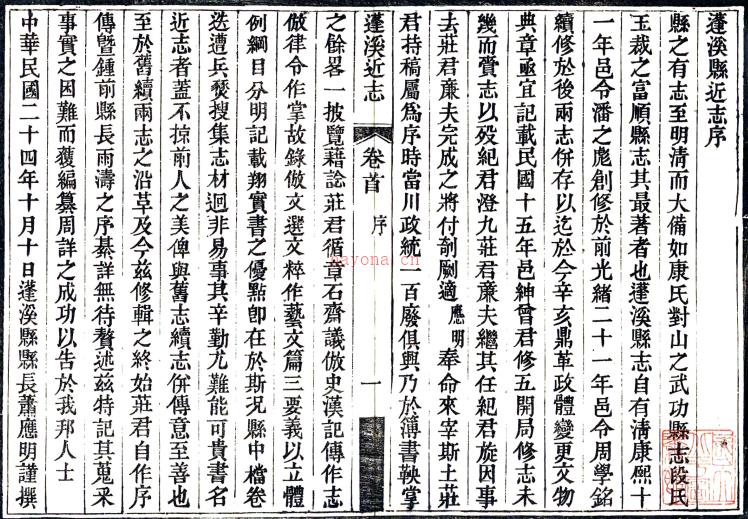 蓬溪縣近志序
縣之有志至明清而大備如康氏對山之武功縣志段氏
玉裁之富順縣志其最著者也蓬溪縣志自有清康熙十
一年邑令潘之彪創修於前光緒二十一年邑令周學銘
續修於後兩志併存以迄於今辛亥鼎革政體變更文物
典章亟宜記載民國十五年邑紳曾君修五開局修志未
幾而賫志以歿紀君澄九莊君廉夫繼其任紀君旋因事
去莊君廉夫完成之將付剞劂適應明奉命來宰斯土莊
君持稿屬爲序時當川政統一百廢俱興乃於簿書鞅掌
蓬溪近志 卷首 序 一
之餘畧一披覽藉諗莊君循章石齋議倣史漢記傳作志
倣律令作掌故錄倣文選文粹作藝文篇三要義以立體
例綱目分明記載翔實書之優點卽在於斯况縣中檔卷
迭遭兵燹搜集志材迥非易事其辛勤尤難能可貴書名
近志者蓋不掠前人之美俾與舊志續志併傳意至善也
至於舊續兩志之沿草及今兹修輯之終始莊君自作序
傳曁鍾前縣長雨濤之序綦詳無待贅述兹特記其蒐采
事實之困難而覆編纂周詳之成功以告於我邦人士
中華民國二十四年十月十日蓬溪縣縣長蕭應明謹撰
nayona.cn